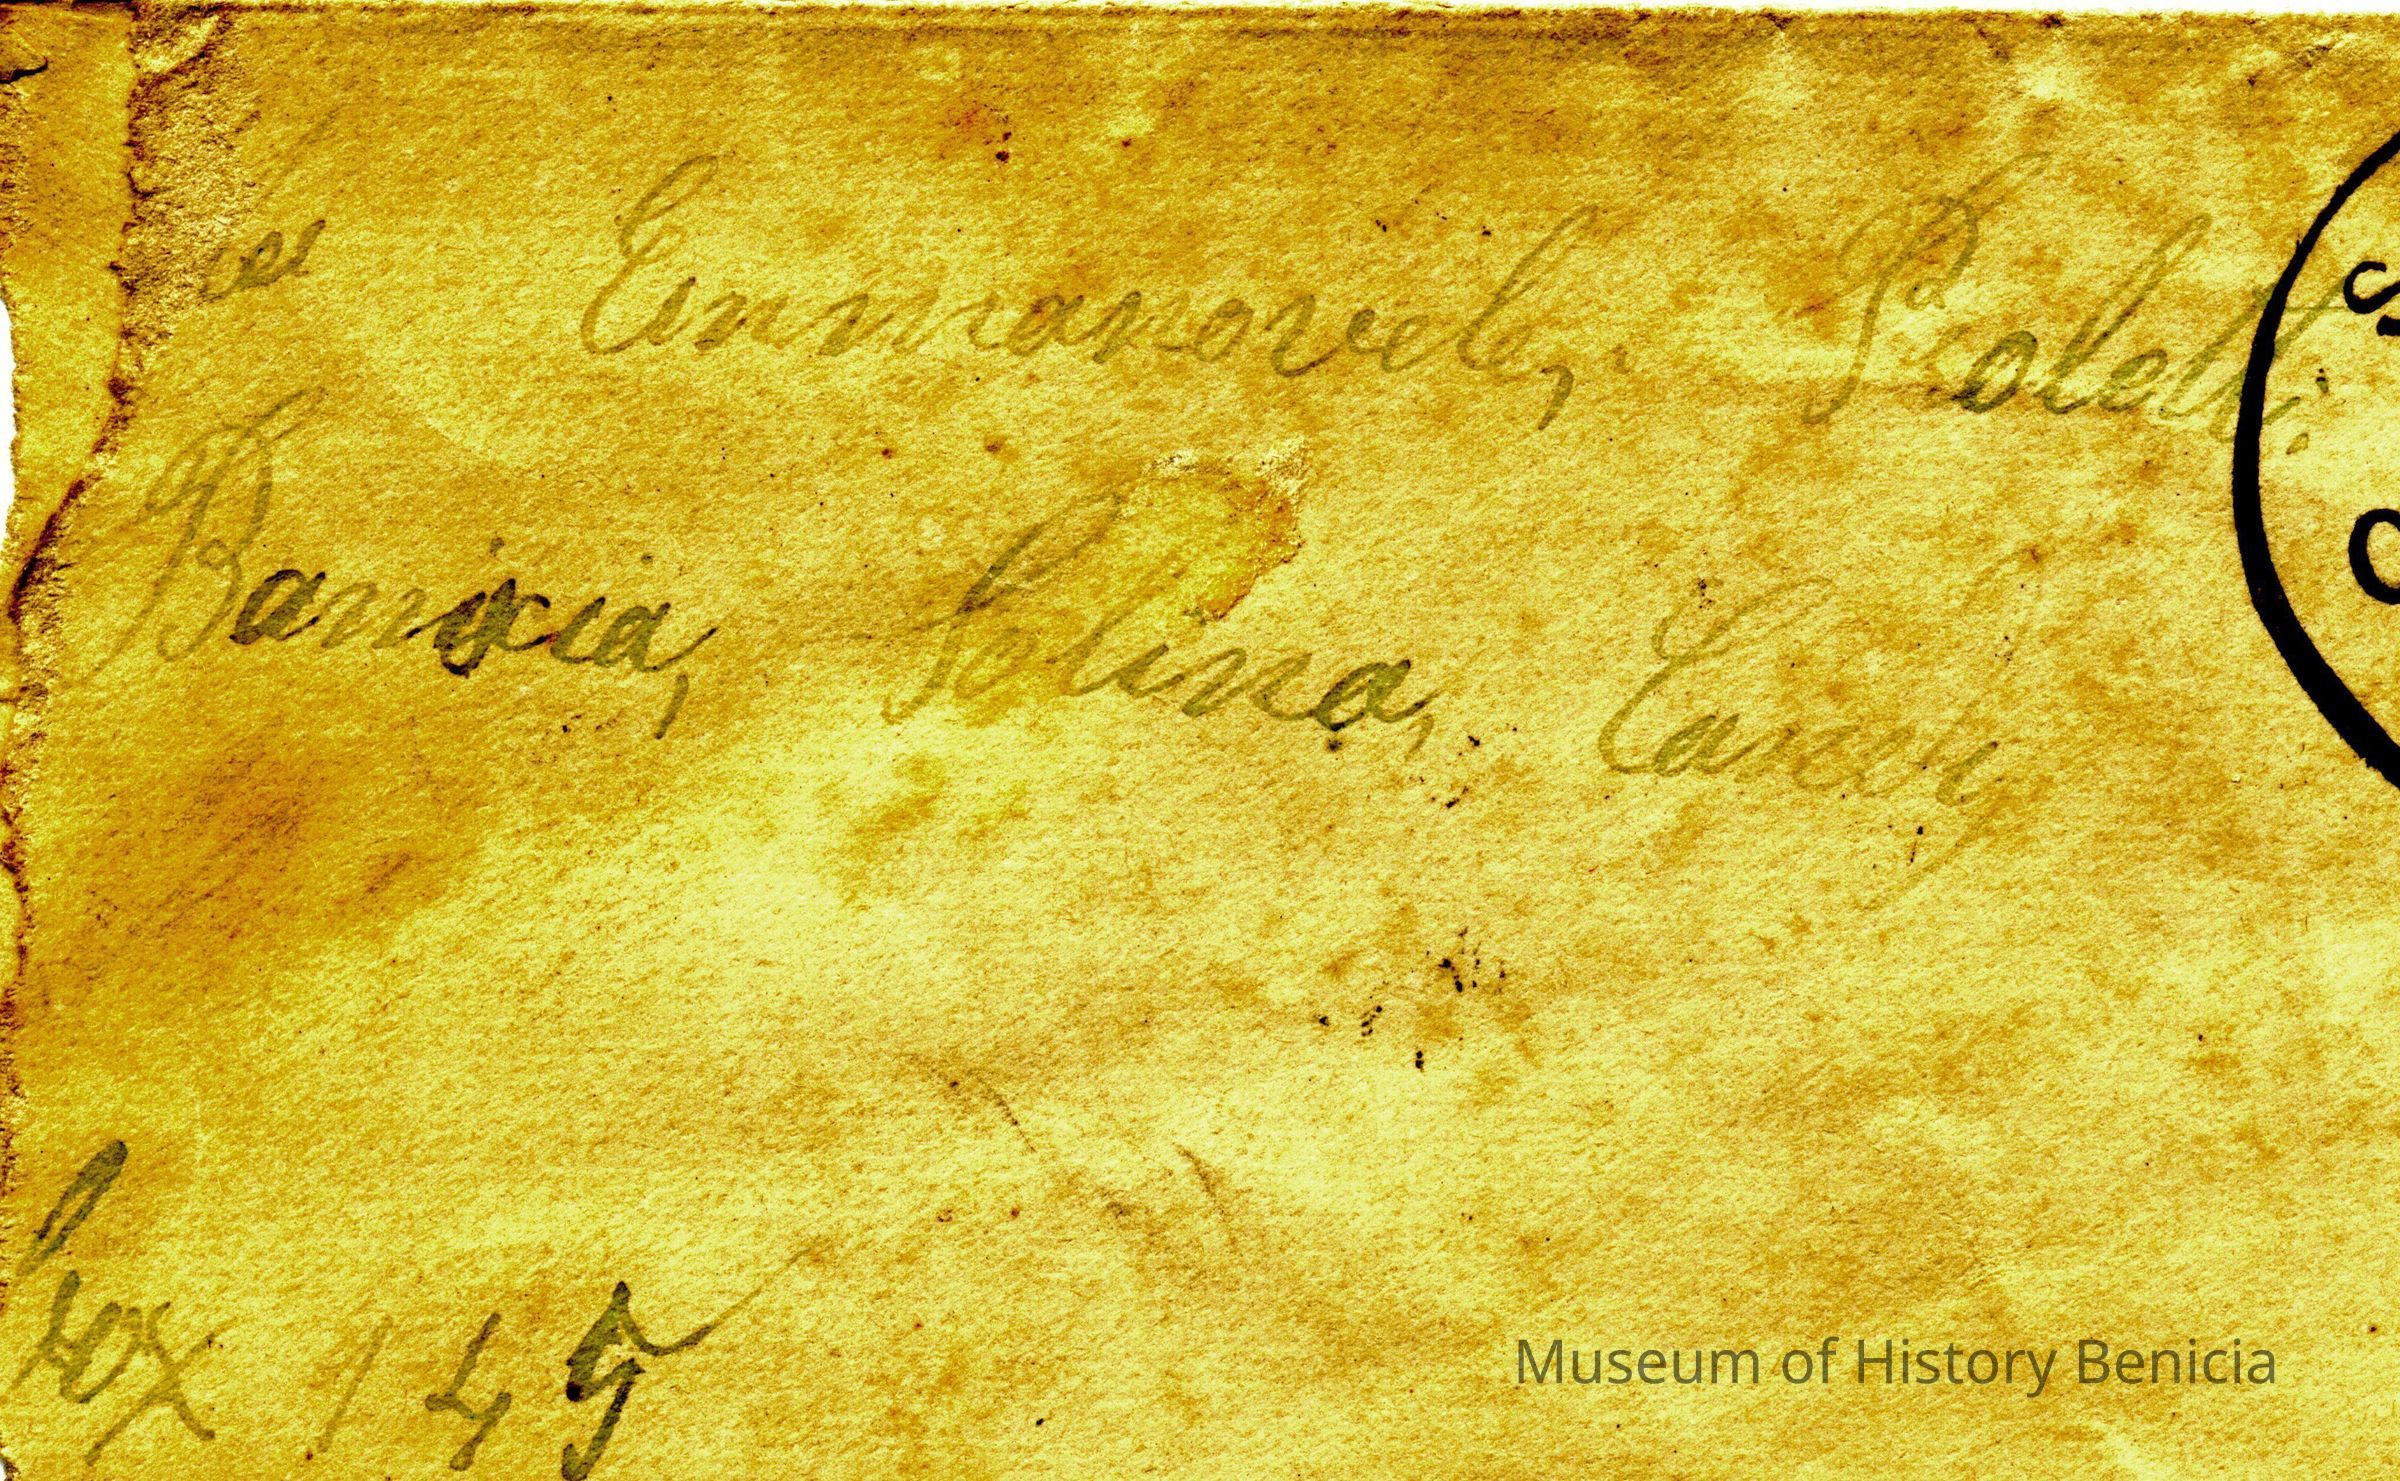 Emmanovele, Pioletti
Banixia, Solina, Caurty
box 145
S
C
Museum of History Benicia